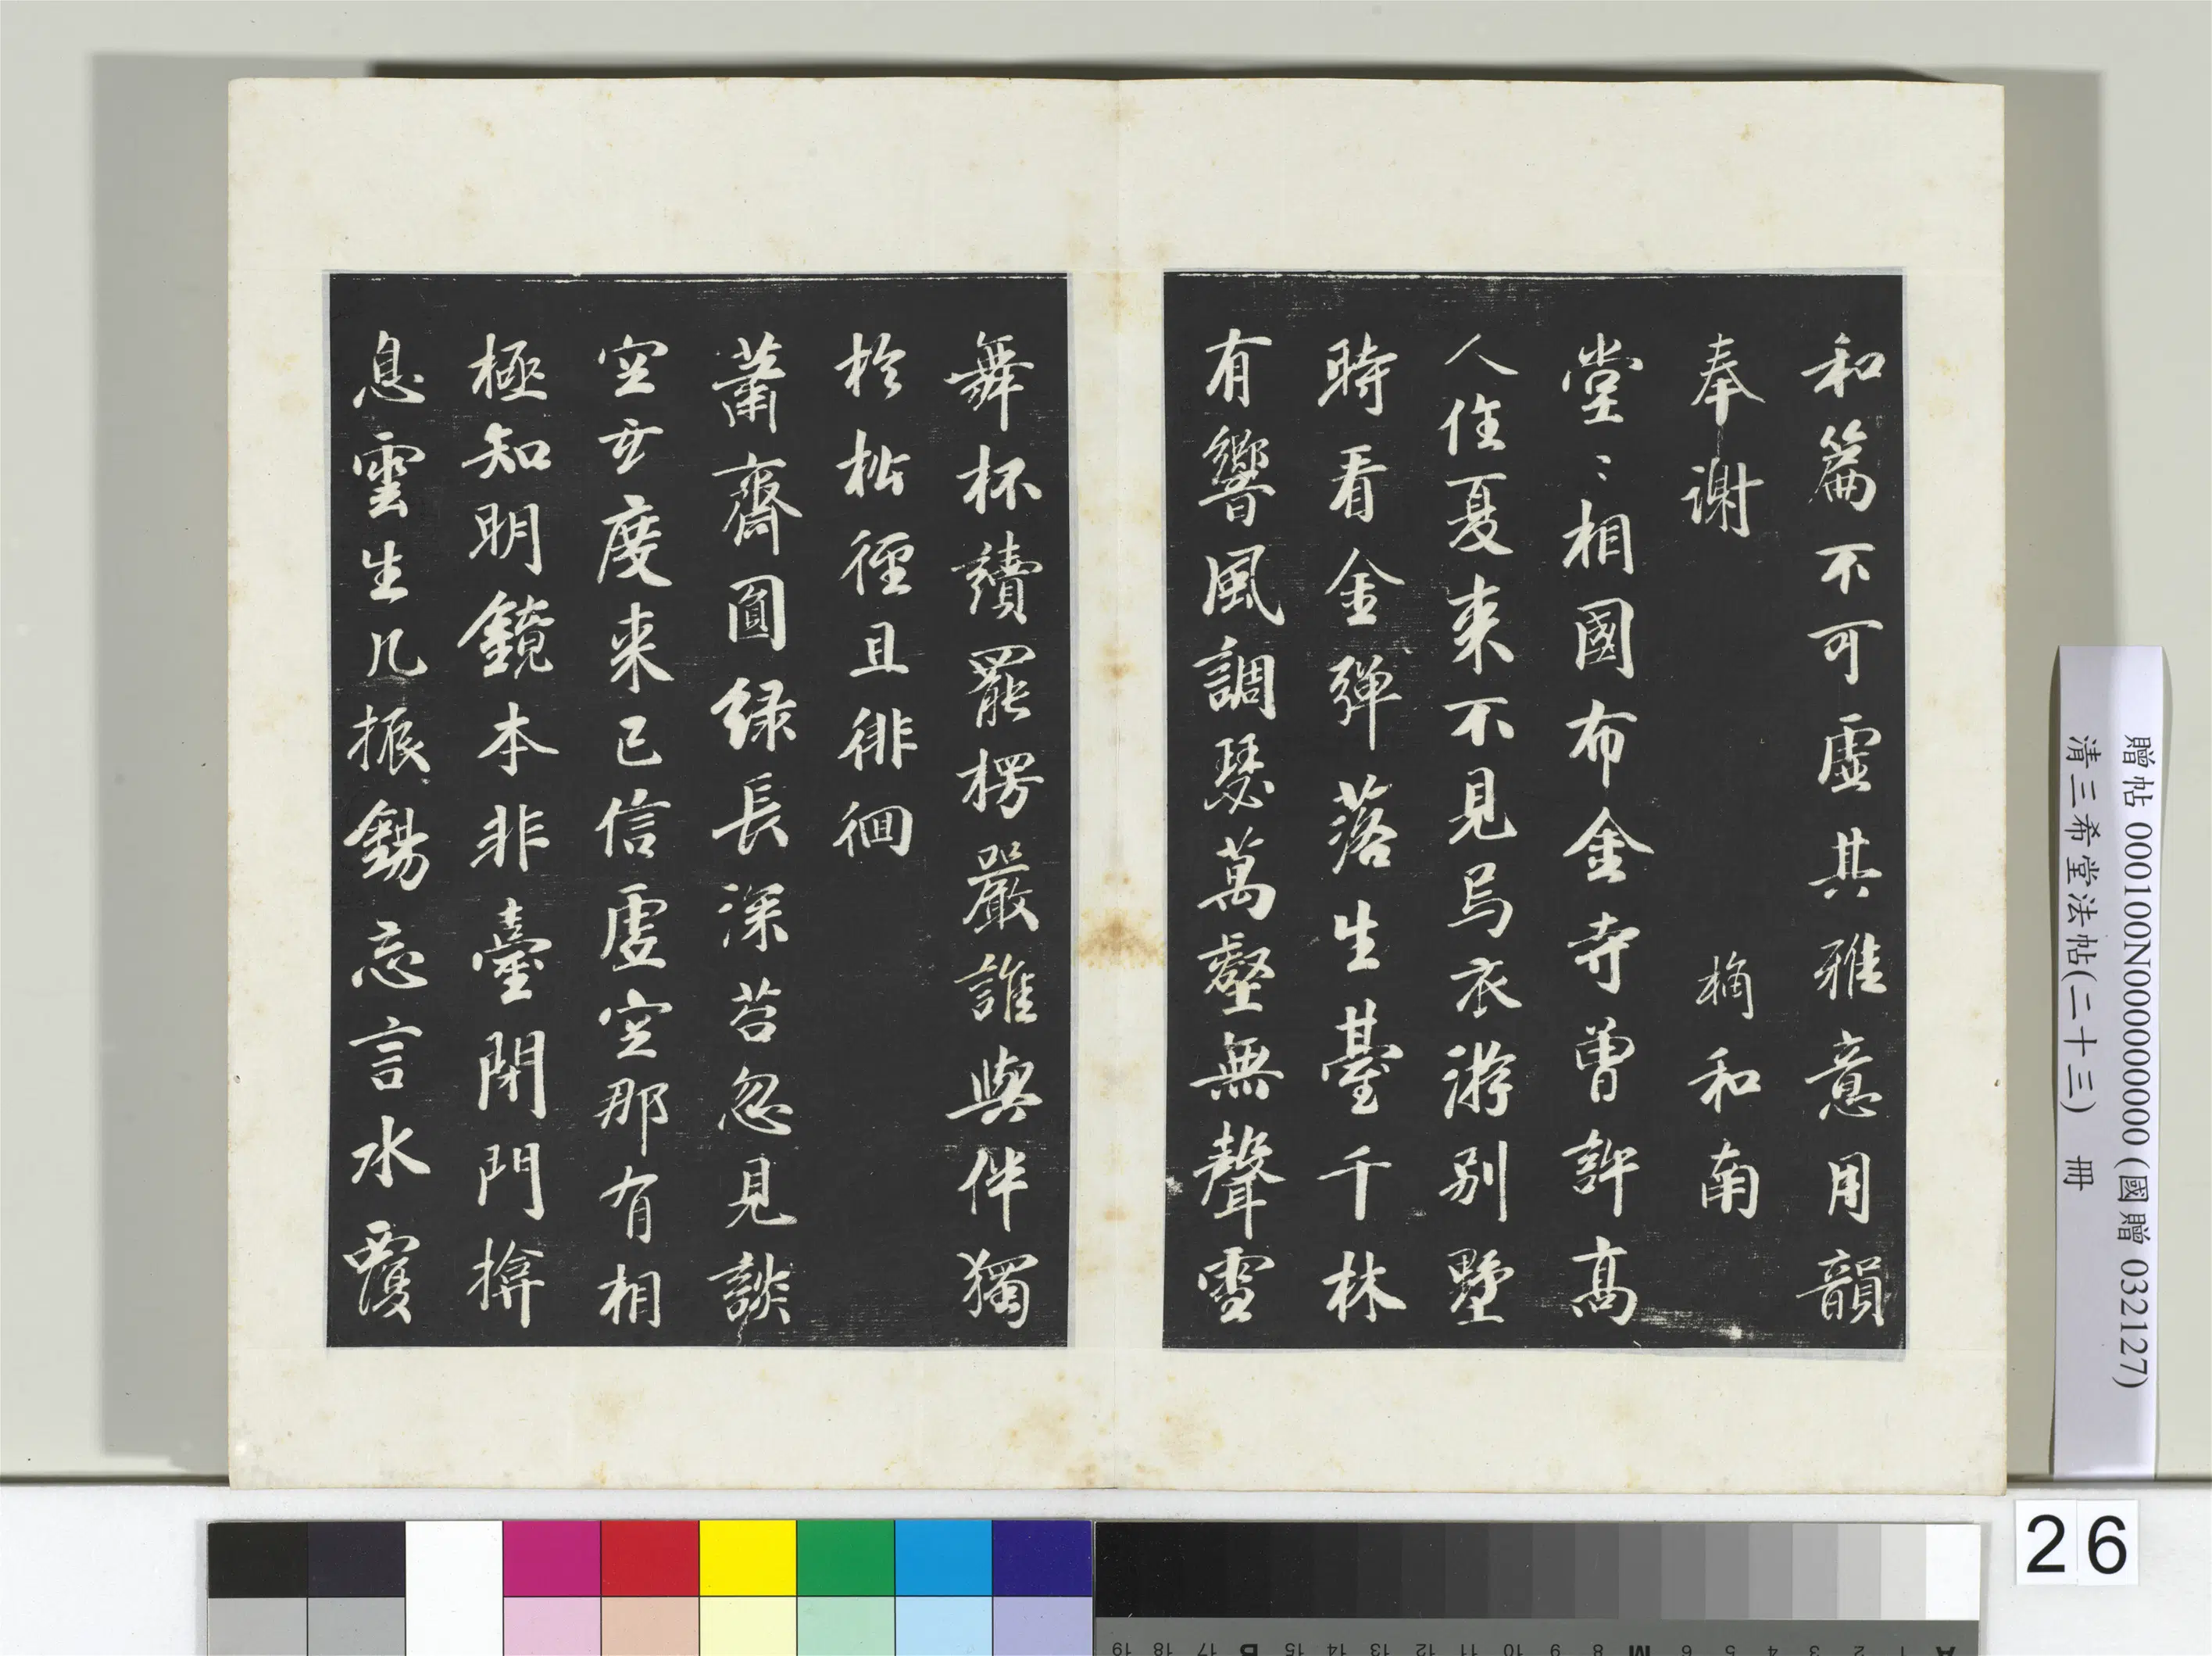 和篇不可虛其雅意用韻
奉謝
楀和南
堂〻相國布金寺曾許高
人住夏来不見烏衣游別墅
時看金彈落生臺千林
有響風調瑟萬壑無聲雪
舞杯讀罷楞嚴誰與伴獨
於松徑且徘徊
蕭齋圓緑長深苔忽見談
空亥度来已信虛空那有相
極知明鏡本非臺閉門揜
息雲生几振錫忘言水覆
贈帖 000100N000000000 (國贈 032127)
清三希堂法帖(二十三) 冊
26